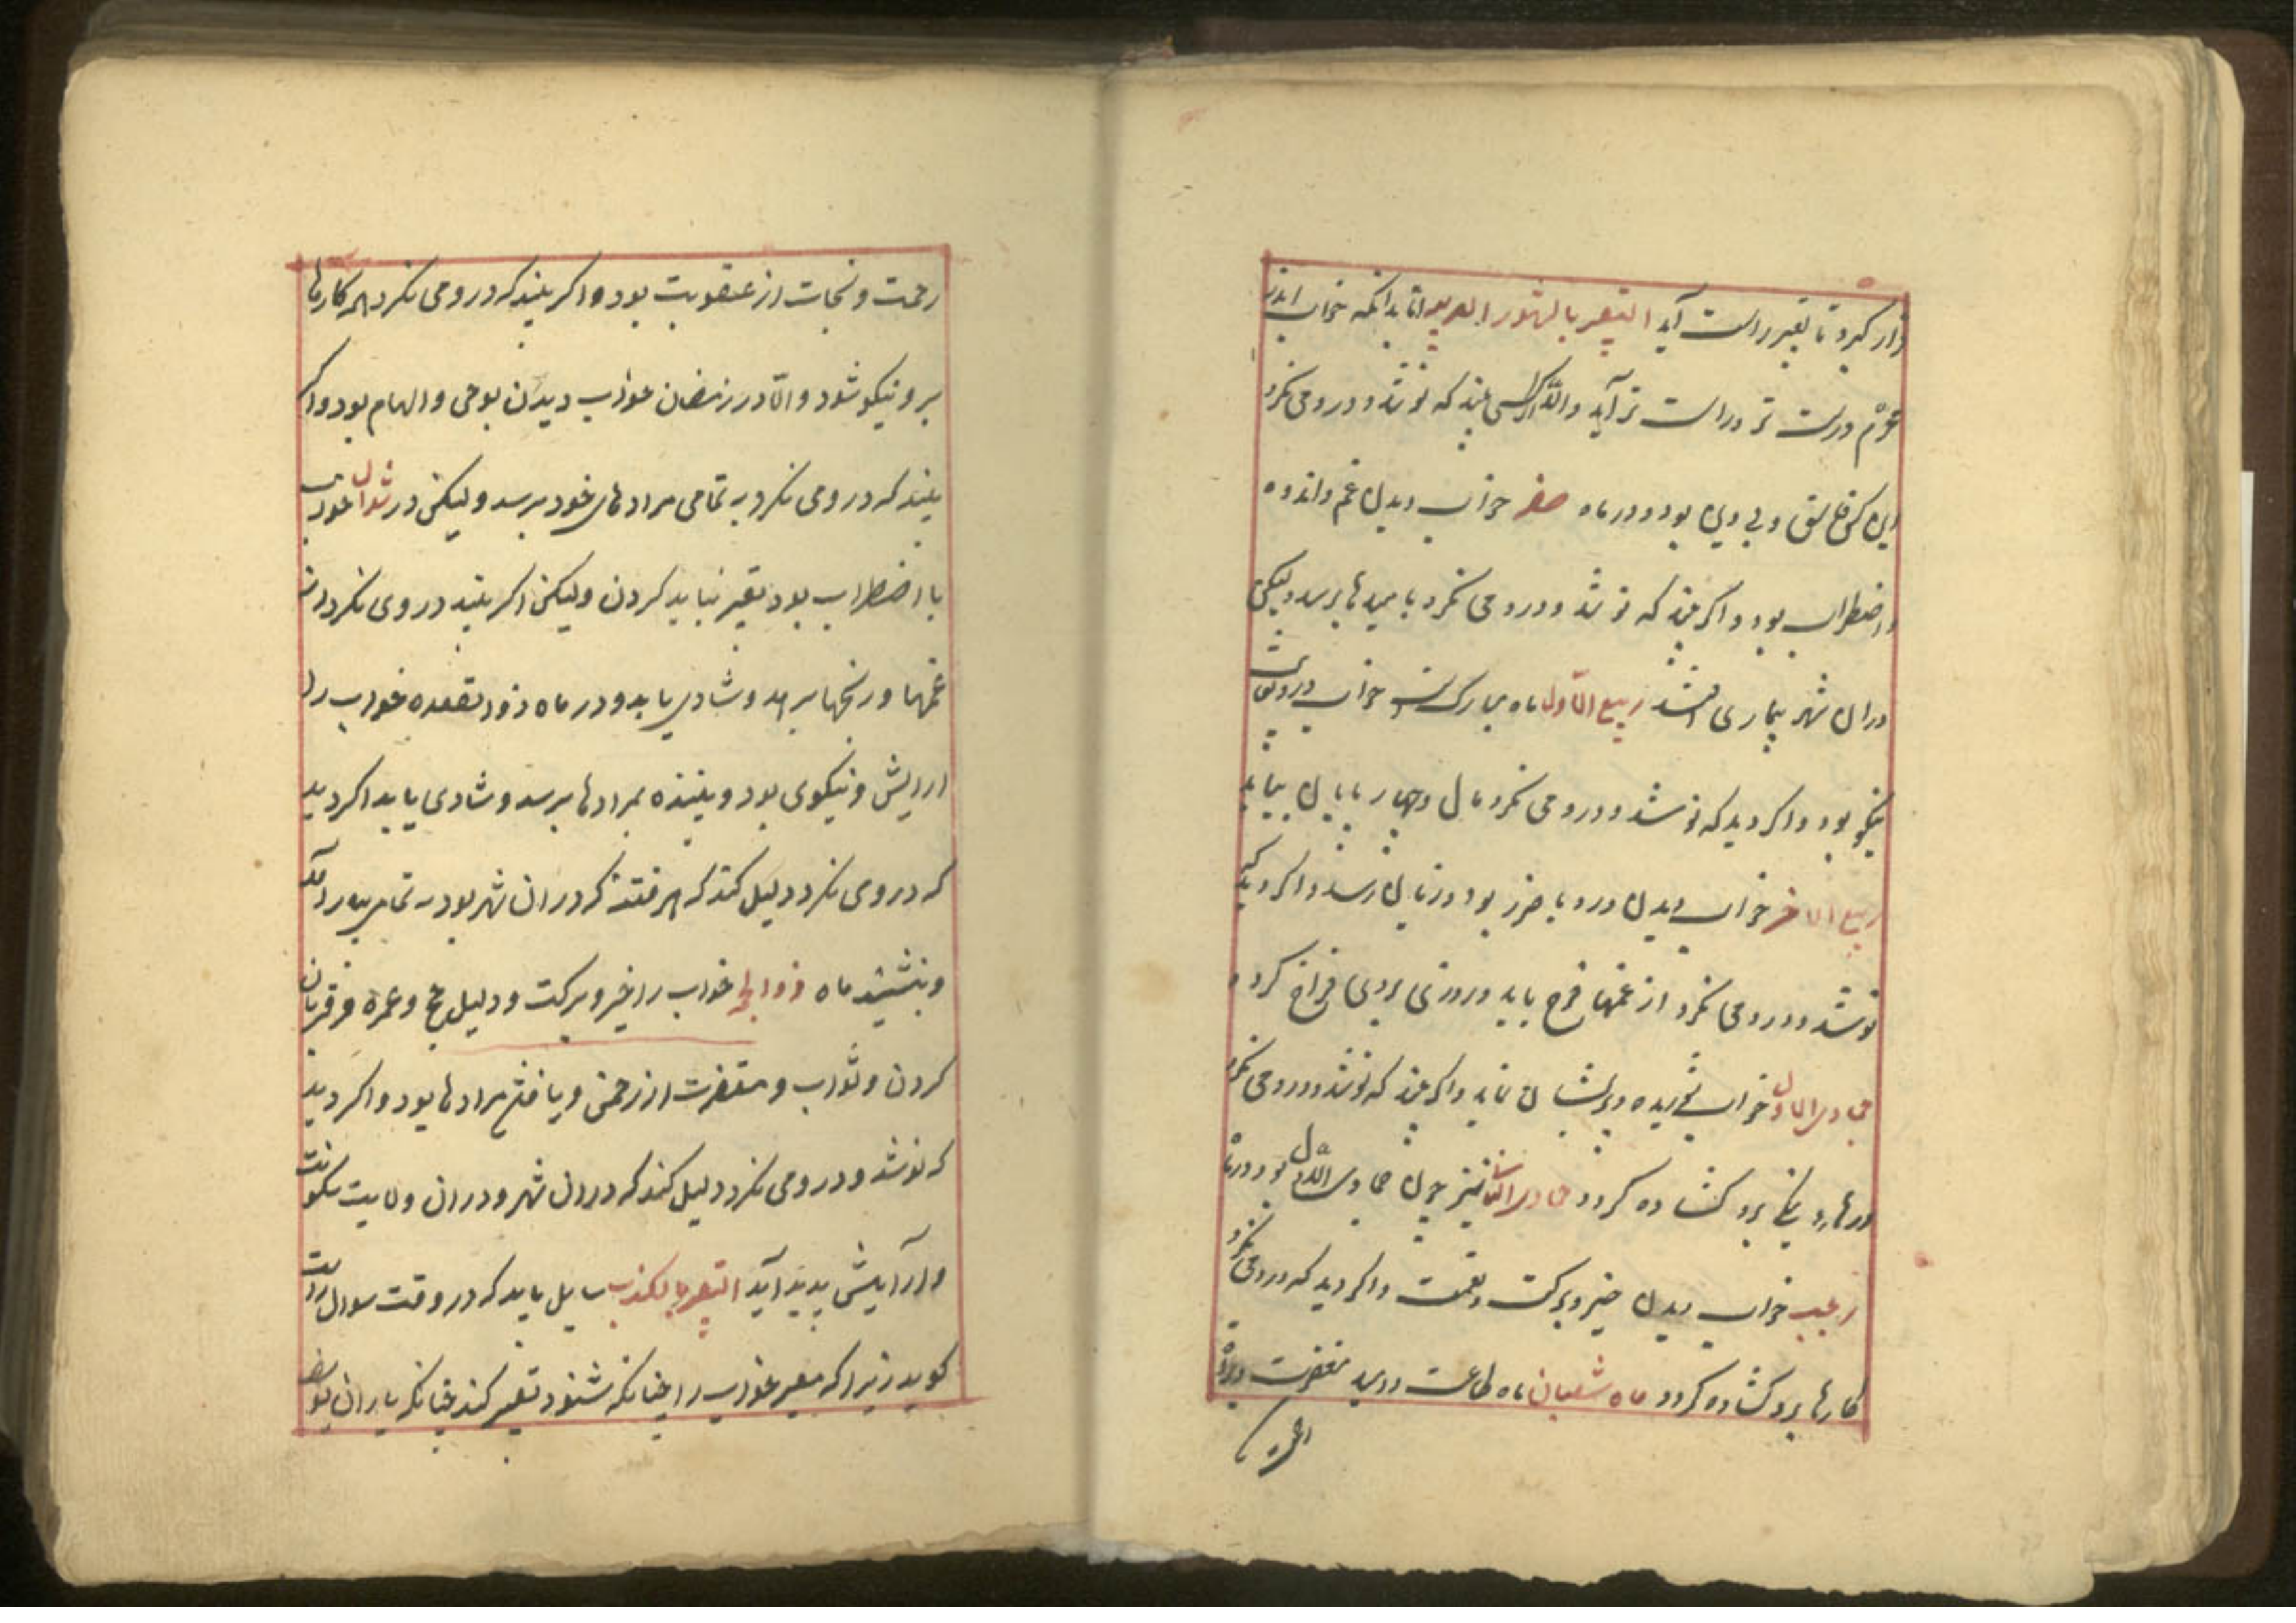 قرار کیرد تا تعبیر راست آید التعبیر بالشهور العربیه اما بدانکه خواب اندر
محرم درست تر و راست تر آید و الا اکر کسی بیند که نو شد و در و می نکرد
این کس فاسق و بی دین بود و در ماه صفر خواب دیدن غم و اندوه
و اضطراب بود و اکر بیند که نو شد و در و می نکرد بامیدها برسد ولیکن
در ان شهر بیماری افتد ربیع الاول ماه مبارکست خواب در وی
نیکو بود و اکر دید که نو شد و در و می نکرد مال و چهار پایان بیابد
ربیع الاخر خواب دیدن در و با ضرر بود و زیان رسد و اکر دید که
نو شد و در و می نکرد از غمها فرج یابد و روزی بروی فراخ کردد
جمادی الاول خواب شوریده و پریشان نماید و اکر بیند که نو شد و در و می نکرد
درهاء نیکی برو کشاده کردد جمادی الثانی نیز چون جمادی الاول بود و در ماه
رجب خواب دیدن خیر و برکت و نعمت و اکر دید که در و می نکرد
کارها برو کشاده کردد ماه شعبان ماه طاعت و امید مغفرت و
رحمت و نجات از عقوبت بود و اکر بیند که در و می نکرد همه کارها
برو نیکو شود و الا در رمضان خواب دیدن بوحی و الهام بود و اکر
بیند که در و می نکرد به تمامی مرادهای خود برسد ولیکن در شوال خواب
با اضطراب بود تعبیر نباید کردن ولیکن اکر بیند در وی نکرد از
غمها و رنجها برهد و شادی یابد و در ماه ذوالقعده خواب را
ارایش و نیکوی بود و بیننده بمرادها برسد و شادی یابد اکر دید
که در و می نکرد دلیل کند که هر فتنه که در ان شهر بود به تمامی
و بنشیند ماه ذوالحجه خواب را خیر و برکت و دلیل حج و عمره و قربان
کردن و ثواب و مغفرت از رحمن و یافتن مرادها بود و اکر دید
که نو شد و در و می نکرد دلیل کند که در ان شهر و در ان ولایت سکونت
و آرایش پدید آید التعبیر بالکذب سایل باید که در وقت سوال راست
کوید زیرا که معبر خواب را چنانکه شنود تعبیر کند چنانکه یاران یوسف